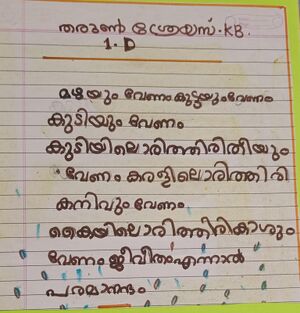 തരുൺ ശ്രേയസ്. KB.
1. D
മഴയും വേണം കുടയുംവേണം
കുടിയും വേണം
കുടിയിലൊരിത്തിരിതീയും
വേണം കരളിലൊരിത്തിരി
കനിവും വേണം.
കൈയിലൊരിത്തിരികാശും
വേണം ജീവിതംഎന്നാൽ
പരമാനന്ദം